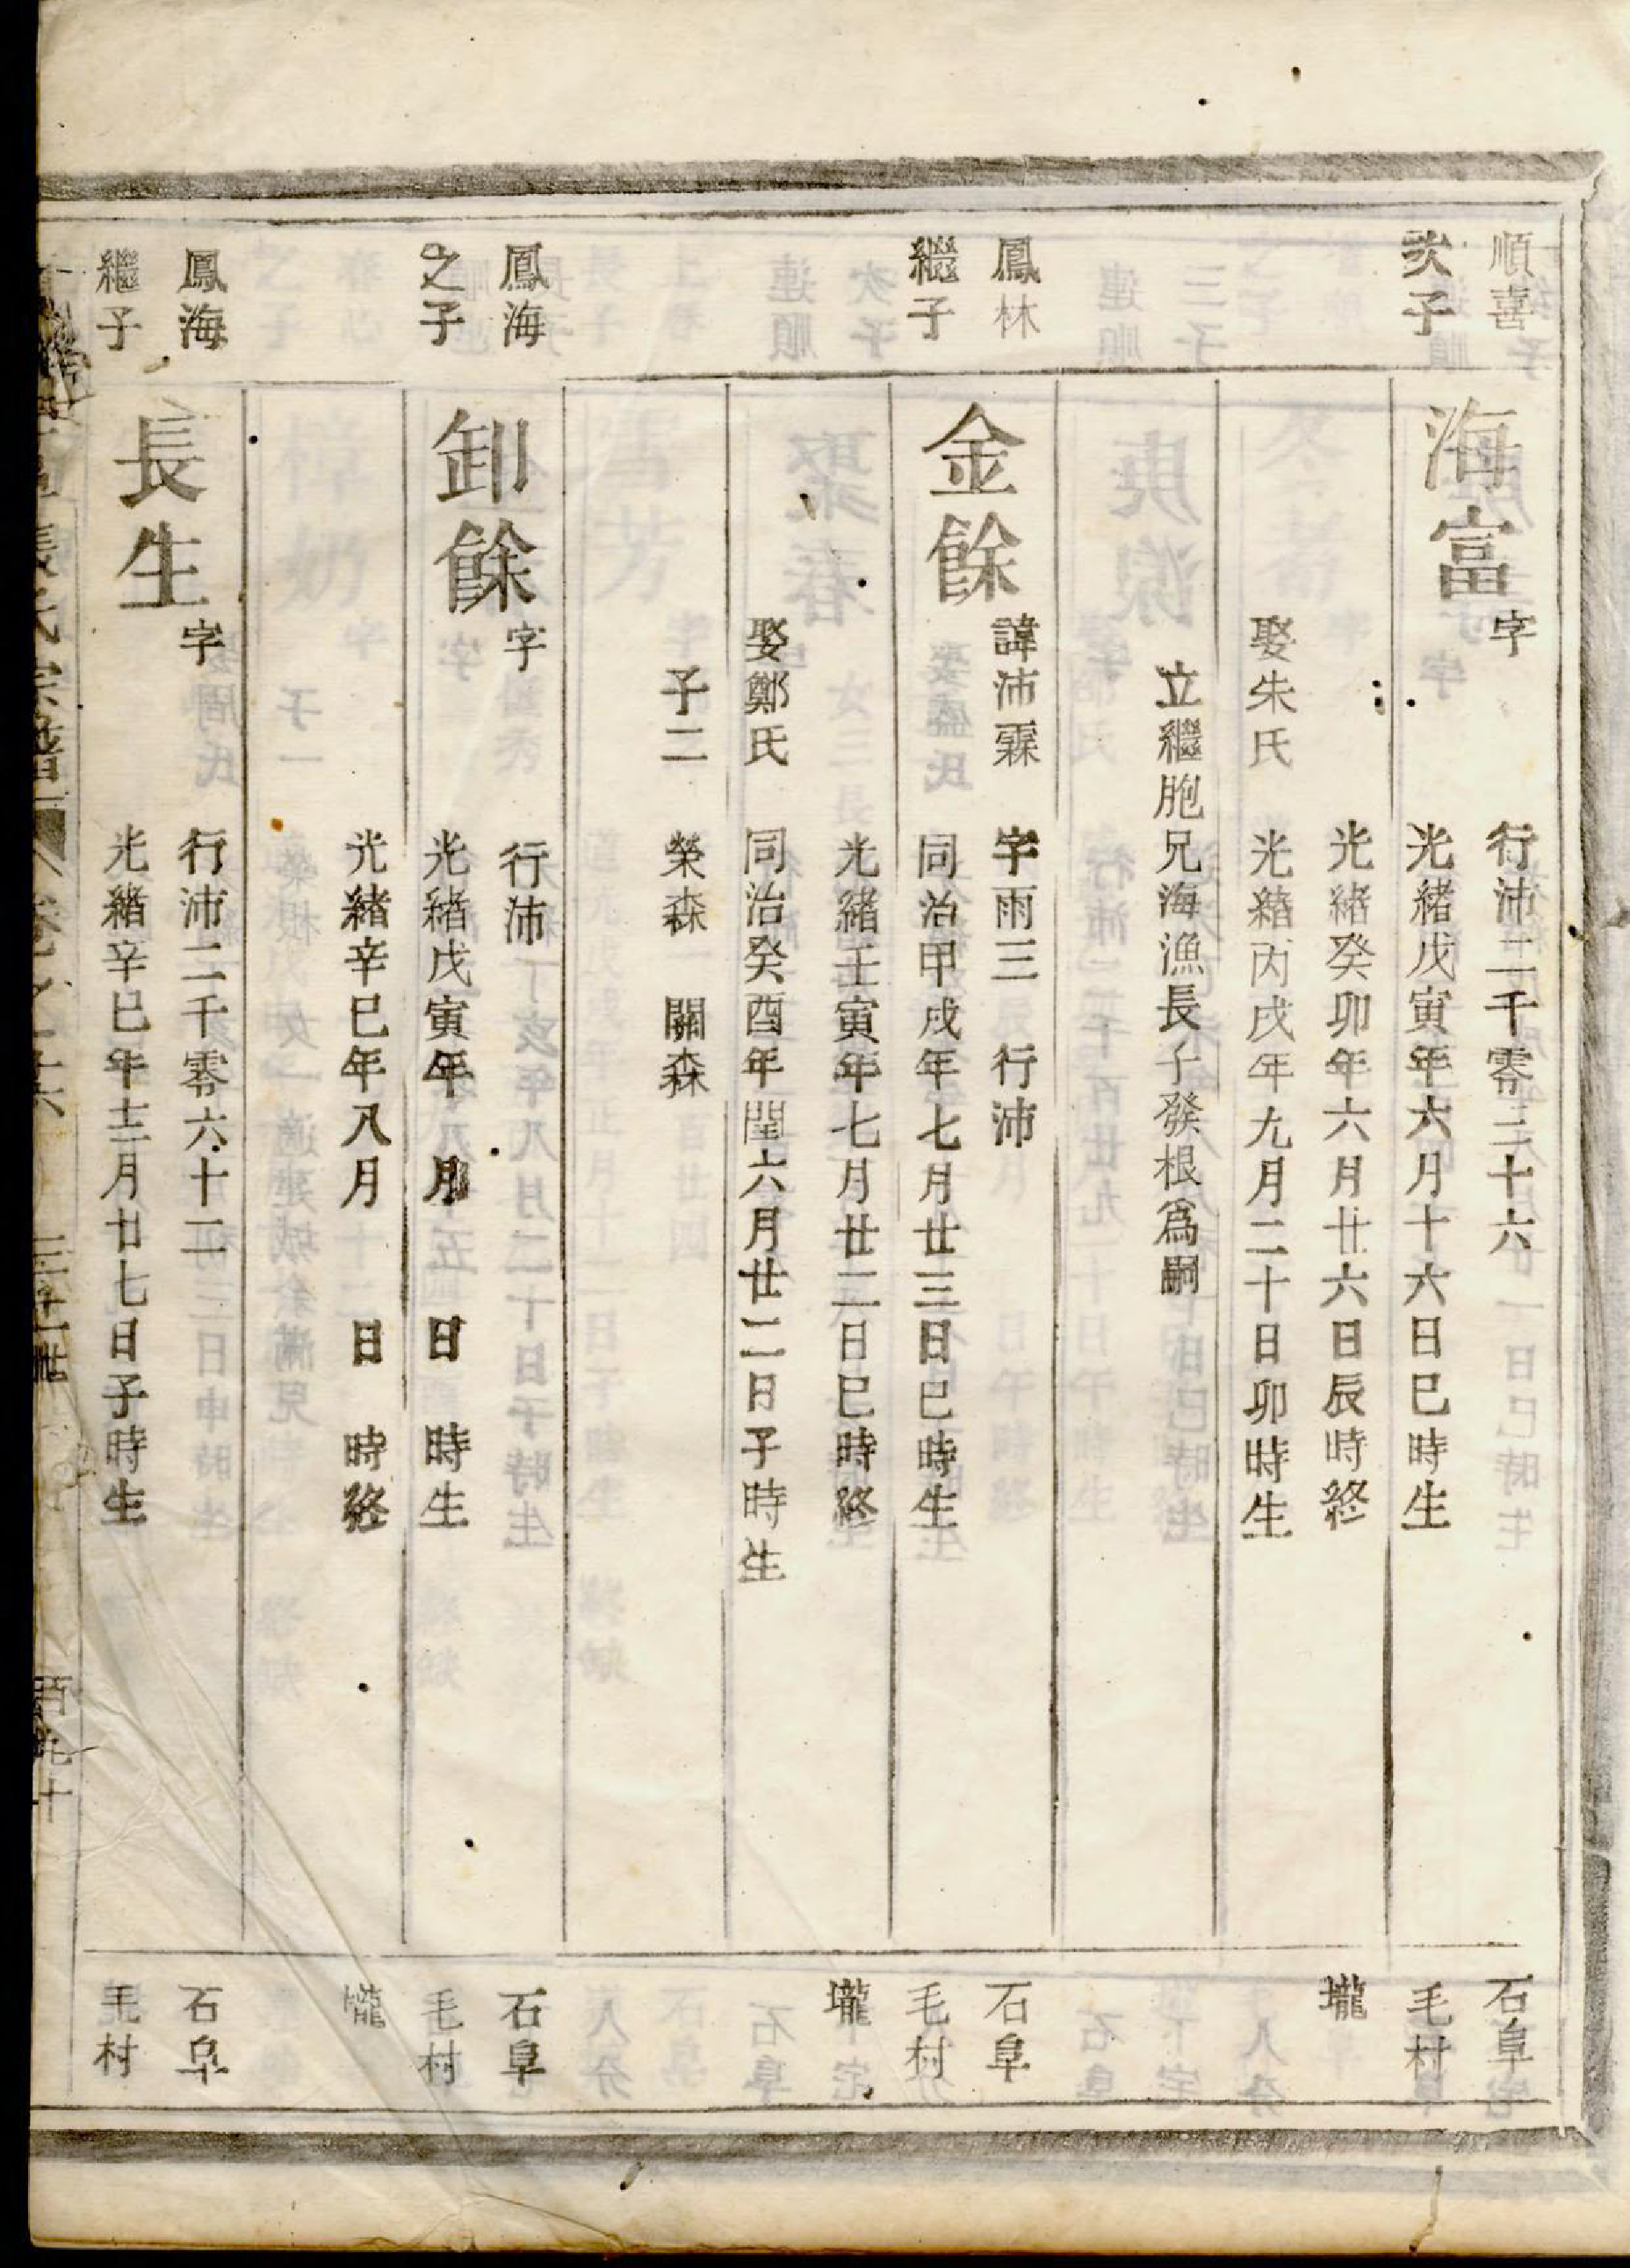 順喜
次子
海富
字
行沛二千零三十六
光緒戊寅年六月十六日巳時生
光緒癸卯年六月廿六日辰時終
娶朱氏
光緒丙戌年九月二十日卯時生
立繼胞兄海漁長子發根爲嗣
石阜
毛村
壠
鳳林
繼子
金餘
諱沛霖 字雨三 行沛
同治甲戌年七月廿三日巳時生
光緒壬寅年七月廿二日巳時終
娶鄭氏
同治癸酉年閏六月廿二日子時生
子二 榮森 關森
石阜
毛村
壠
鳳海
之子
卸餘
字
行沛
光緒戊寅年 月 日 時生
光緒辛巳年八月 日 時終
石阜
毛村
壠
鳳海
繼子
長生
字
行沛二千零六十二
光緒辛巳年十二月廿七日子時生
石阜
毛村